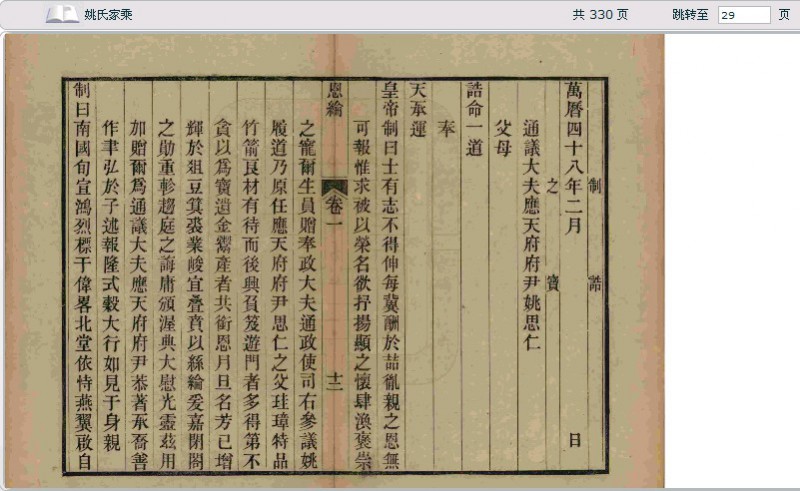 姚氏家乘
共 330 页
跳转至 29 页
制 誥
萬曆四十八年二月 日
之 寶
通議大夫應天府府尹姚思仁
父母
誥命一道
奉
天承運
皇帝制曰士有志不得伸每冀酬於喆胤親之恩無
可報惟求被以榮名欲抒揚顯之懷肆渙褒崇
恩綸 卷一 十三
之寵爾生員贈奉政大夫通政使司右參議姚
履道乃原任應天府府尹思仁之父珪璋特品
竹箭良材有待而後興負笈遊門者多得第不
貪以爲寶遺金鬻產者共銜恩月旦名芳已增
輝於俎豆箕裘業峻宜疊賁以絲綸爰嘉閉閤
之勛重軫趨庭之誨庸頒渥典大慰光靈茲用
加贈爾爲通議大夫應天府府尹恭著承喬善
作聿弘於子述報隆式穀大行如見于身親
制曰南國旬宣鴻烈標于偉畧北堂依恃燕翼啟自